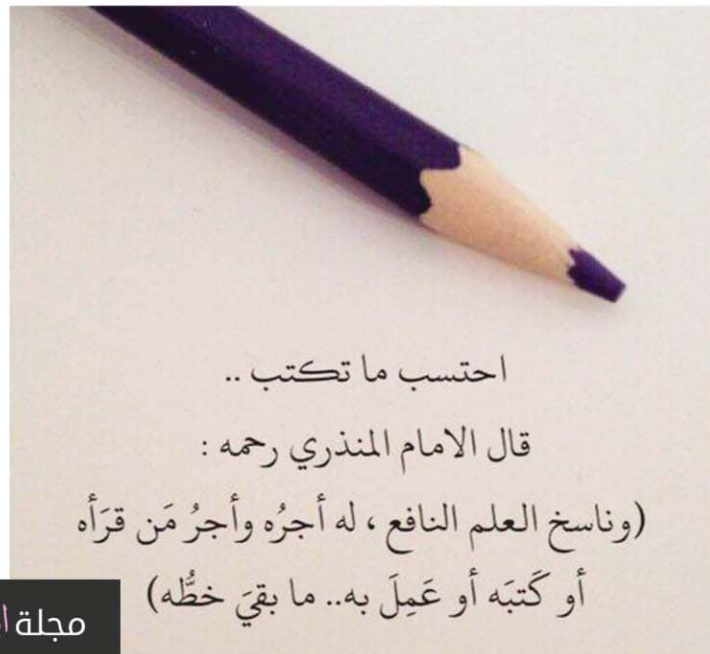 احتسب ما تكتب ..
قال الامام المنذري رحمه :
(وناسخ العلم النافع ، له أجرُه وأجرُ مَن قرَأه
أو كَتبَه أو عَمِلَ به.. ما بقيَ خطُّه)
مجلة